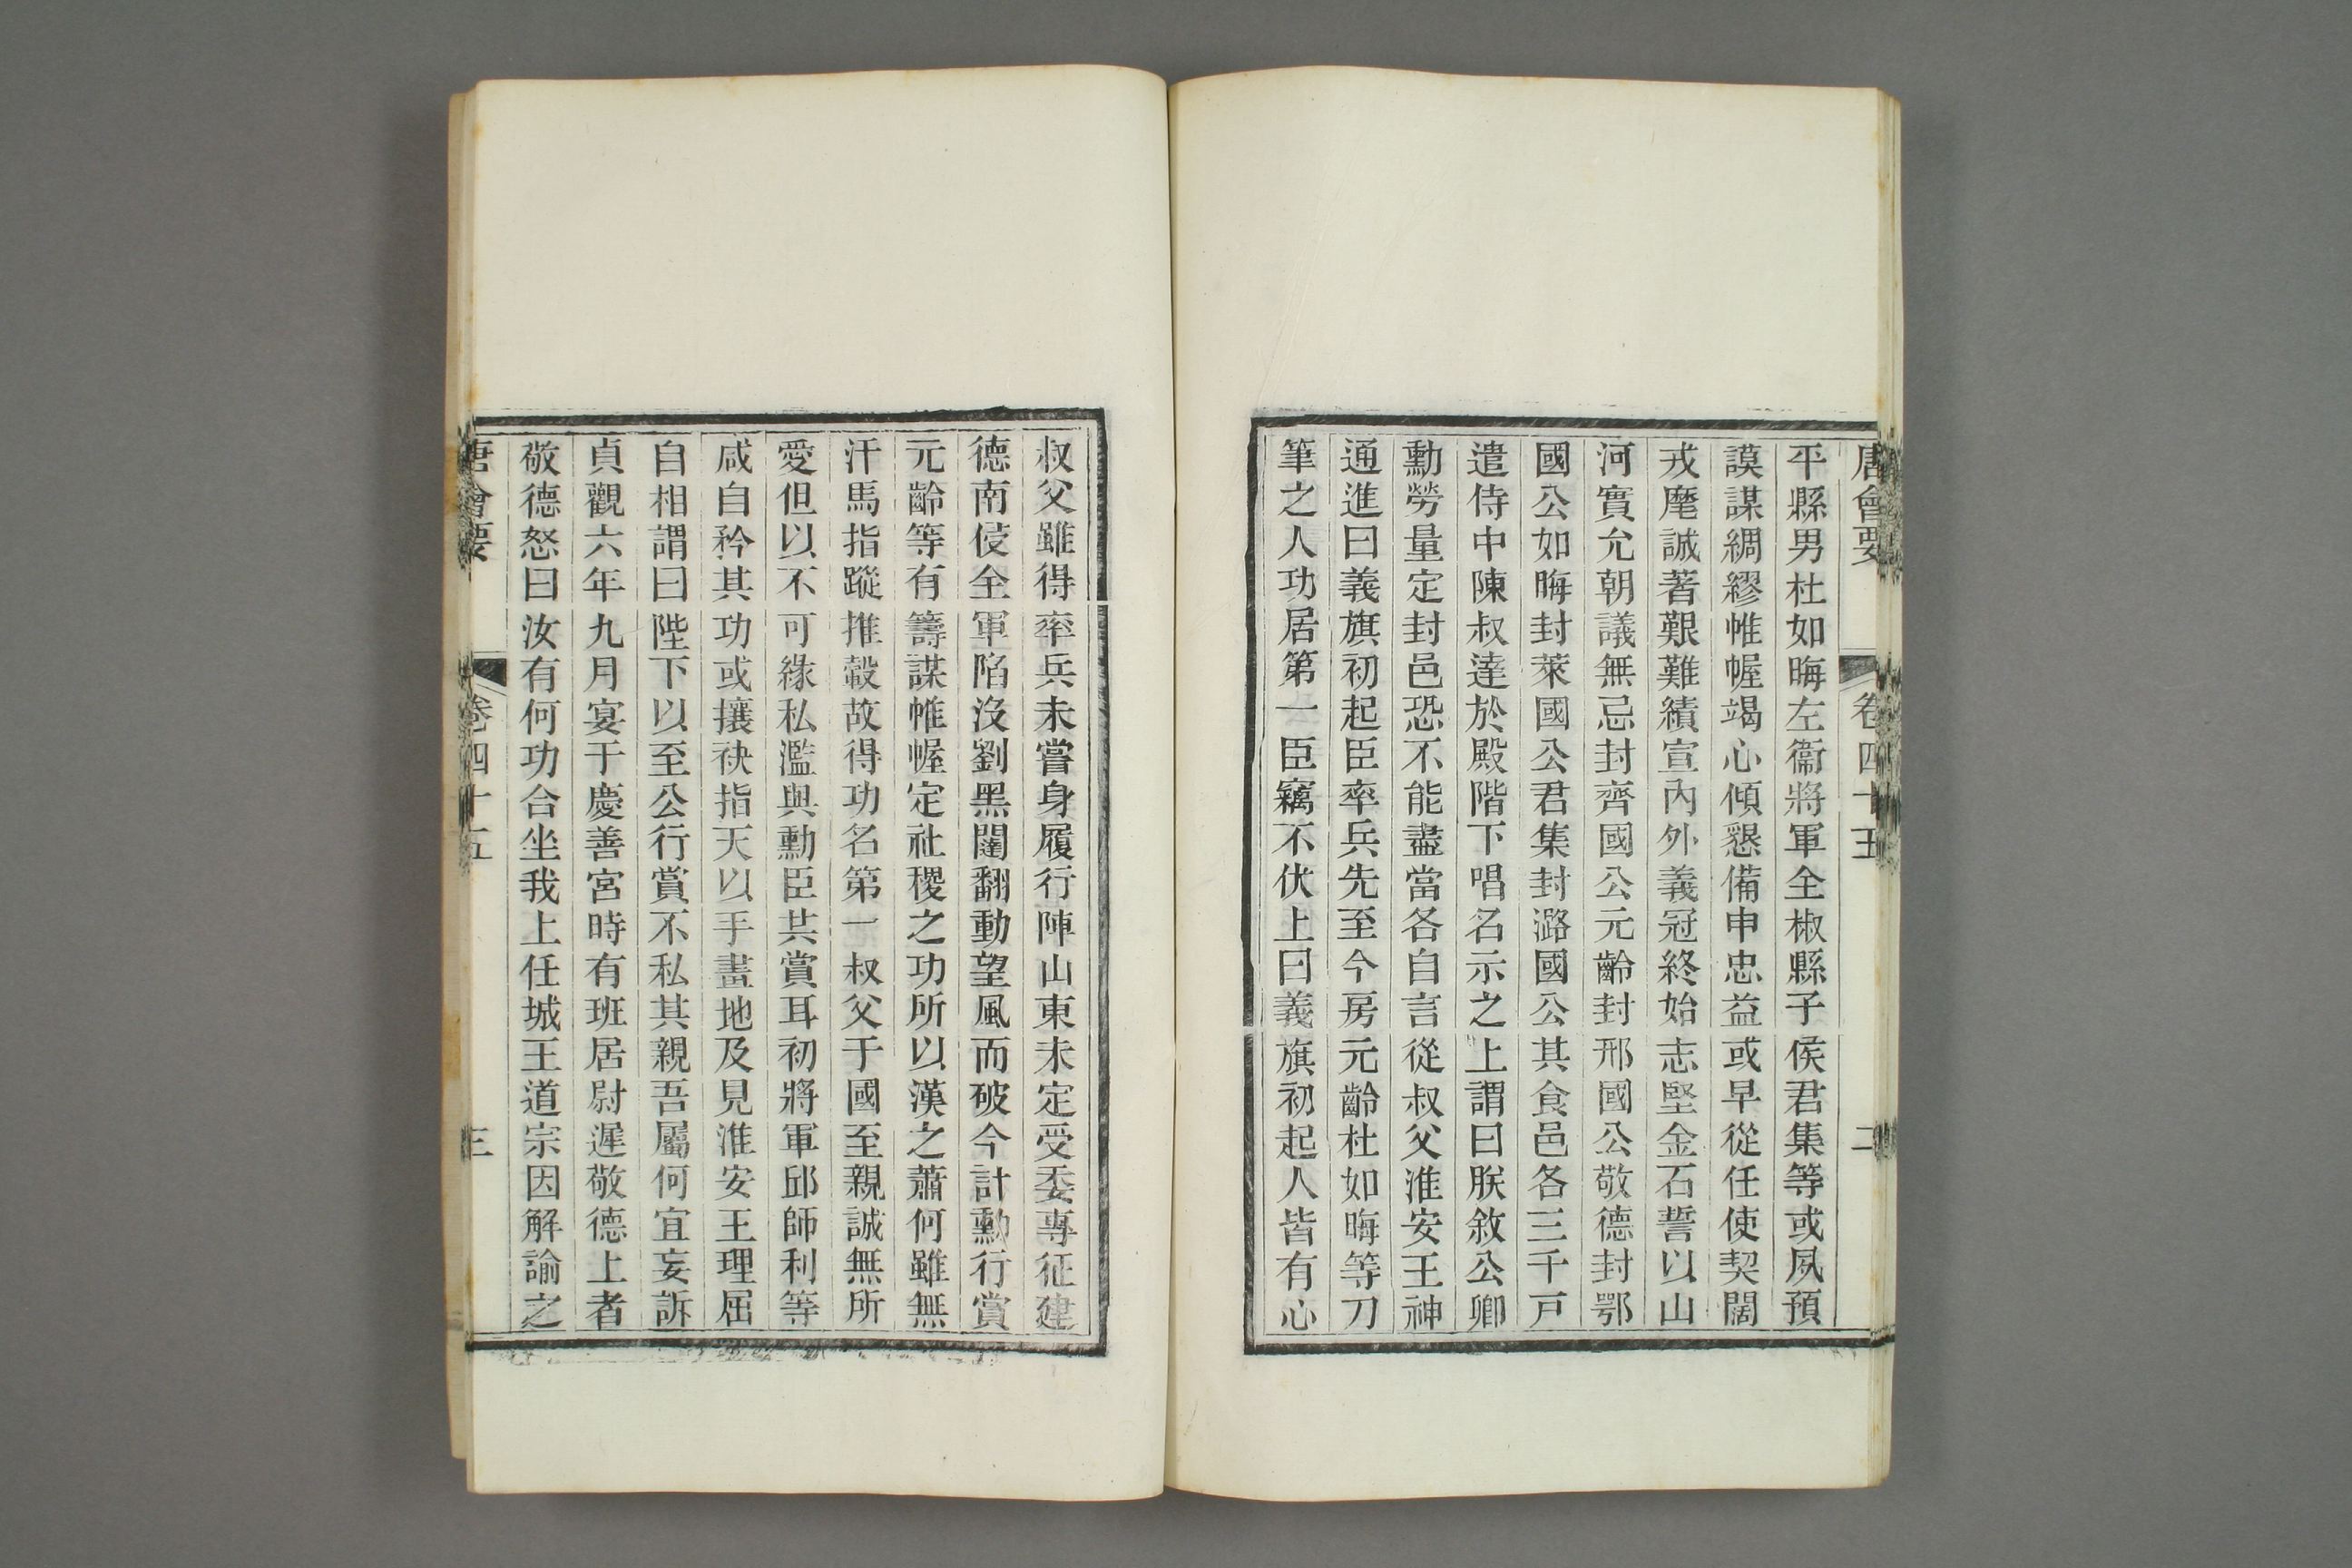 唐會要 卷四十五 二
平縣男杜如晦左衞將軍全椒縣子侯君集等或夙預
謨謀綢繆帷幄竭心傾懇備申忠益或早從任使契闊
戎麾誠著艱難績宣內外義冠終始志堅金石誓以山
河實允朝議無忌封齊國公元齡封邢國公敬德封鄂
國公如晦封萊國公君集封潞國公其食邑各三千戸
遣侍中陳叔達於殿階下唱名示之上謂曰朕敘公卿
勳勞量定封邑恐不能盡當各自言從叔父淮安王神
通進曰義旗初起臣率兵先至今房元齡杜如晦等刀
筆之人功居第一臣竊不伏上曰義旗初起人皆有心
叔父雖得率兵未嘗身履行陣山東未定受委專征建
德南侵全軍陷沒劉黑闥翻動望風而破今計勳行賞
元齡等有籌謀帷幄定社稷之功所以漢之蕭何雖無
汗馬指蹤推轂故得功名第一叔父于國至親誠無所
愛但以不可緣私濫與勳臣共賞耳初將軍邱師利等
咸自矜其功或攘袂指天以手畫地及見淮安王理屈
自相謂曰陛下以至公行賞不私其親吾屬何宜妄訴
貞觀六年九月宴于慶善宮時有班居尉遲敬德上者
敬德怒曰汝有何功合坐我上任城王道宗因解諭之
唐會要 卷四十五 三